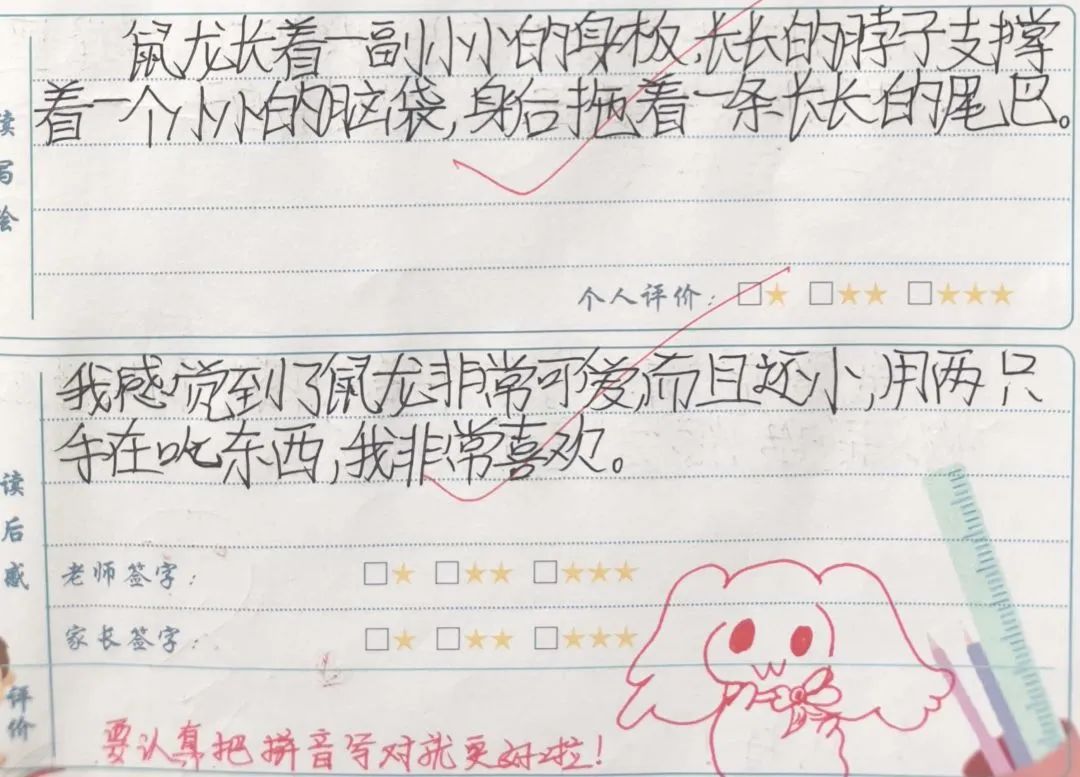 鼠龙长着一副小小的身板,长长的脖子支撑
着一个小小的脑袋,身后拖着一条长长的尾巴。
读写绘
个人评价: □★ □★★ □★★★
我感觉到了鼠龙非常可爱,而且还小,用两只
手在吃东西,我非常喜欢。
读后感
老师签字: □★ □★★ □★★★
家长签字: □★ □★★ □★★★
评价
要认真把拼音写对就更好啦!